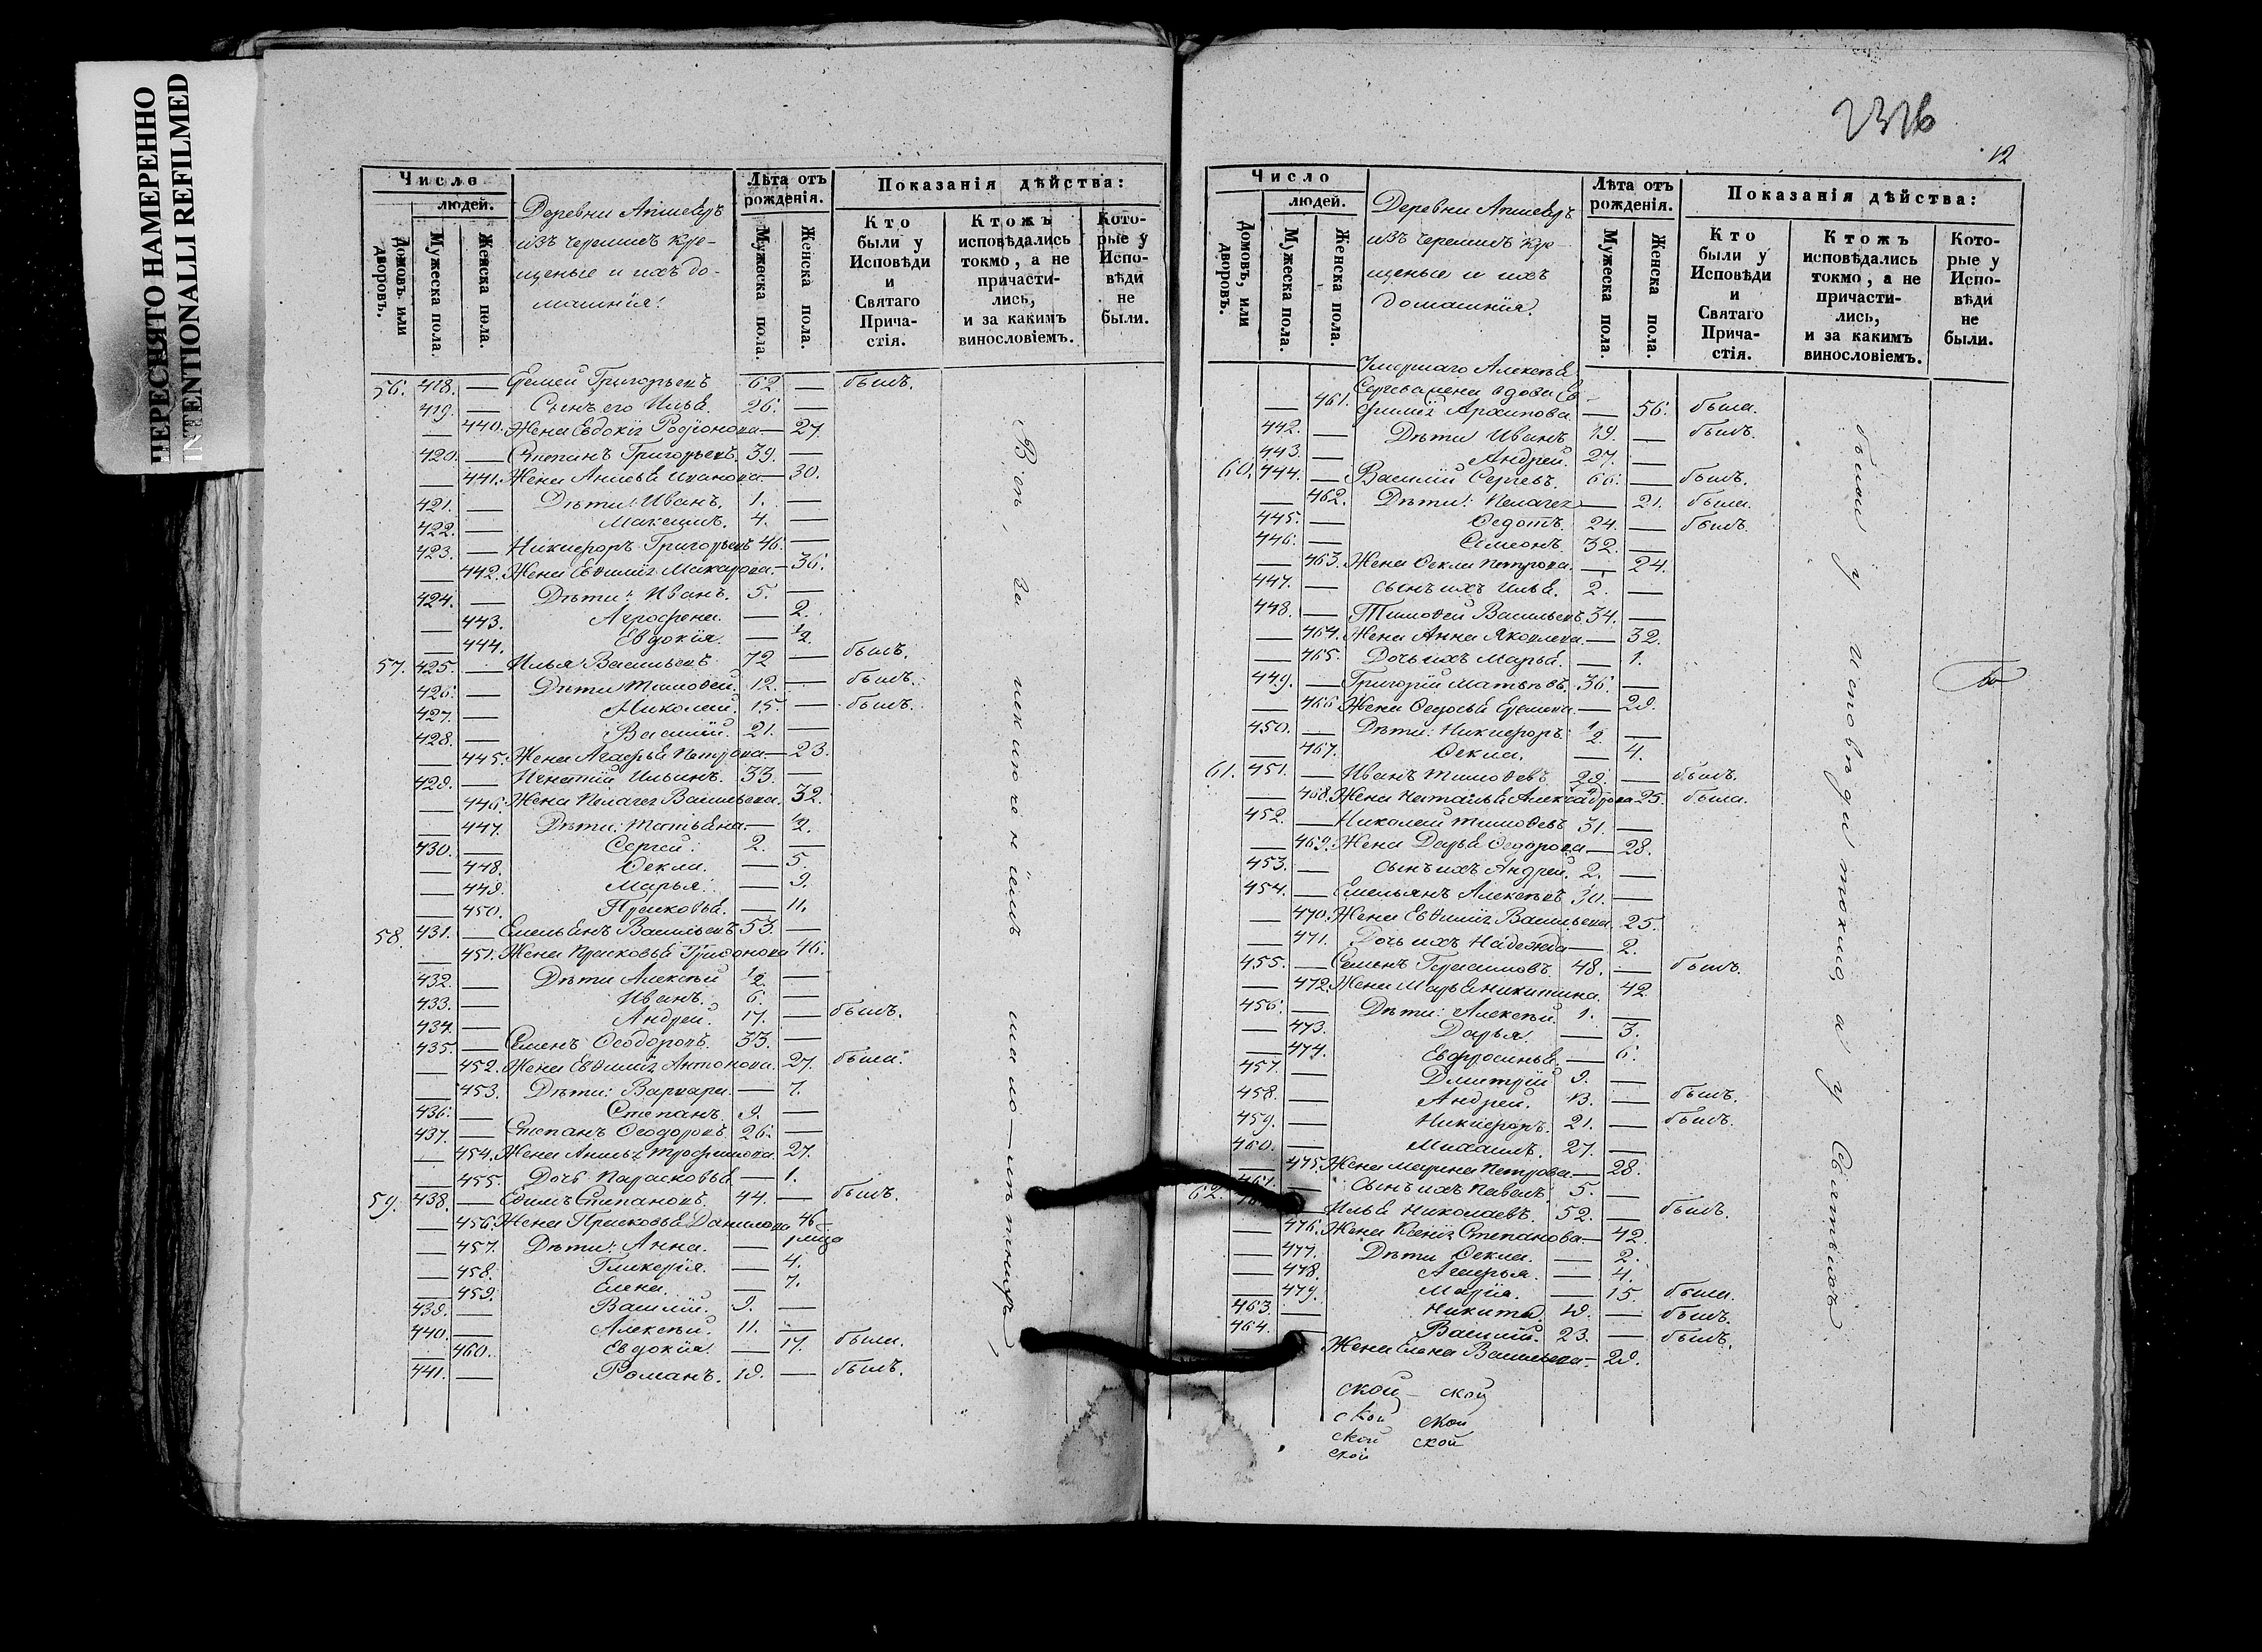 ПЕРЕСНЯТО НАМЕРЕННО
INTENTIONALLI REFILMED
Число
людей.
Домовъ или дворовъ.
Мужеска пола.
Женска пола.
Деревни
изъ черемисъ кре-
щеные и ихъ до-
машнія:
Лѣта отъ рожденія.
Мужеска пола.
Женска пола.
Показанія дѣйства:
Кто были у Исповѣди и Святаго Прича-стія.
Ктожъ исповѣдались токмо, а не причасти-лись, и за какимъ винословіемъ.
Кото-рые у Испо-вѣди не были.
56. 418. — Еремей Григорьевъ 62 — былъ.
419. — Сынъ его Илья. 26. —
— 440. Жена Евдокія Родіонова — 27.
420. — Степанъ Григорьевъ. 39. —
— 441. Жена Анисья Иванова — 30.
421. — Дѣти: Иванъ. 1. —
422. — Максимъ. 4. —
423. — Никифоръ Григорьевъ 46. —
— 442. Жена Евѳимія Макарова — 36.
424. — Дѣти: Иванъ. 5. —
— 443. Агрофена. — 2.
— 444. Евдокія. — 1/2.
57. 425. — Илья Васильевъ 72 — былъ.
426. — Дѣти Тимоѳей. 12. — былъ.
427. — Николай. 15. — былъ.
428. — Василій. 21. —
— 445. Жена Агафья Петрова — 23.
429. — Игнатій Ильинъ. 33. —
— 446. Жена Пелагея Васильева. 32.
— 447. Дѣти: Татьяна — 1/2.
430. — Сергей. 2. —
— 448. Ѳекла. — 5.
— 449. Марья. — 9.
— 450. Прасковья. — 11.
58. 431. — Емельянъ Васильевъ 53. —
— 451. Жена Прасковья 46.
432. — Дѣти Алексѣй 1/2. —
433. — Иванъ. 6. —
434. — Андрей. 17. — былъ.
435. — Семенъ Ѳеодоровъ. 33. —
— 452. Жена Евѳимія Антонова. 27. была.
— 453. Дѣти: Варвара. — 7.
436. — Степанъ. 9. —
437. — Степанъ Ѳеодоровъ 26. —
— 454. Жена Анисья Трофимова. 27.
— 455. Дочь Парасковья. — 1.
59. 438. — Ефимъ Степановъ 44. — былъ.
— 456. Жена Прасковья Данилова 46
— 457. Дѣти: Анна. —
— 458. Гликерія. — 4.
— 459. Елена. — 7.
439. — Василій. 9. —
440. — Алексѣй. 11. —
— 460. Евдокія. — 17. была.
441. — Романъ. 19. — былъ.
исключеніемъ мало-лѣтнихъ
12
Число
людей.
Домовъ, или дворовъ.
Мужеска пола.
Женска пола.
Деревни
изъ черемисъ кре-
щеные и ихъ
домашнія.
Лѣта отъ рожденія.
Мужеска пола.
Женска пола.
Показанія дѣйства:
Кто были у Исповѣди и Святаго Прича-стія.
Ктожъ исповѣдались токмо, а не причасти-лись, и за какимъ винословіемъ.
Кото-рые у Испо-вѣди не были.
Умершаго Алексѣя
Сергева жена вдова Ев-
— 461. фимія Архипова — 56. была.
442. — Дѣти Иванъ 19. — былъ.
443. — Андрей. 27. —
60. 444. — Василій Сергевъ. 66. — былъ.
— 462. Дѣти: Пелагея — 21. была.
445. — Ѳедотъ. 24. — былъ.
446. — Симеонъ. 32. —
— 463. Жена Ѳекла Петрова. — 24.
447. — сынъ ихъ Илья. 2. —
448. — Тимоѳей Васильевъ 34. —
— 464. Жена Анна Яковлева — 32.
— 465. Дочь ихъ Марья. — 1.
449. — Григорій Матвѣевъ 36. —
— 466. Жена Ѳедосья Еремеева. — 29.
450. — Дѣти: Никифоръ. 1/2. —
— 467. Ѳекла. — 4.
61. 451. — Иванъ Тимоѳевъ 29. — былъ.
— 468. Жена Наталья Александрова 25. была.
452. — Николай Тимоѳевъ 31. —
— 469. Жена Дарья Ѳеодорова — 28.
453. — сынъ ихъ Андрей. 2. —
454. — Емельянъ Алексѣевъ 30. —
— 470. Жена Евѳимія Васильева. 25.
— 471. Дочь ихъ Надежда — 2.
455. — Семенъ Герасимовъ 48. — былъ.
— 472. Жена Марья Никитина. 42.
456. — Дѣти: Алексѣй. 1. —
— 473. Дарья. — 3.
— 474. Евфросинья. — 6.
457. — Дмитрій 9. —
458. — Андрей. 13. — былъ.
459. — Никифоръ. 21. — былъ.
460. — Михаилъ. 27. —
— 475. Жена Марина Петрова — 28.
461. — Сынъ ихъ Павелъ. 5. —
62. — Илья Николаевъ. 52. — былъ.
— 476. Жена Ксенія Степанова — 42.
— 477. Дѣти Ѳекла. — 2.
— 478. Агафья. — 4.
— 479. Марія. — 15. была.
463. — Никита. 19. — былъ.
464. — Василій. 23. — былъ.
Жена Елена Васильева — 29.
были у исповѣди токмо, а у Святыхъ
ской — ской
ской ской
ской ской
ской